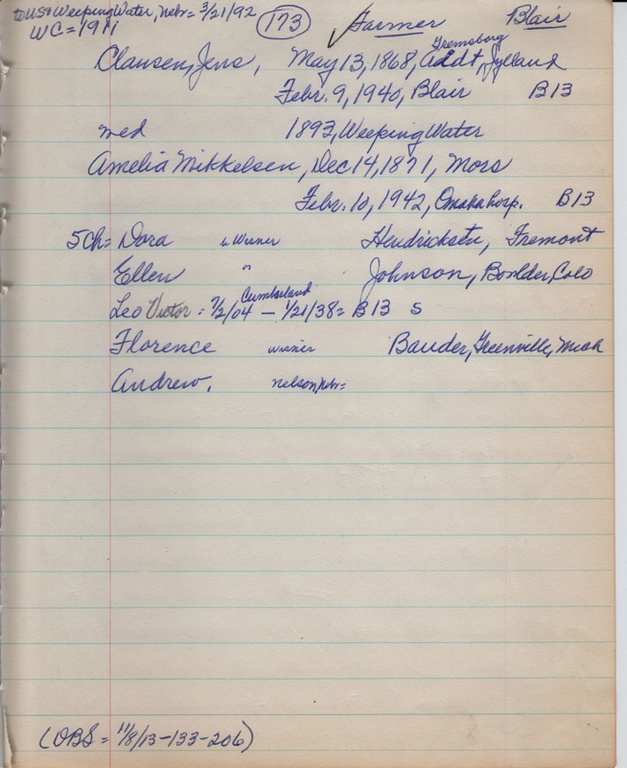 to USA Weeping Water, Nebr = 3/21/92 (173) ✓ Farmer Blair
WC = 1911
Clausen, Jens, May 13, 1868, Addt, Jylland
Febr. 9, 1940, Blair B13
med 1893, Weeping Water
Amelia Mikkelsen, Dec 14, 1871, Mors
Febr. 10, 1942, Omaha hosp. B13
5 Ch = Dora Wisner Hendricksen, Fremont
Ellen " Johnson, Boulder, Colo
Cumberland
Leo Victor = 7/2/04 — 1/21/38 = B13 S
Florence Wisner Bauder, Greenville, Mich
Andrew, Nelson, Nebr =
(OBS = 11/8/13-133-206)